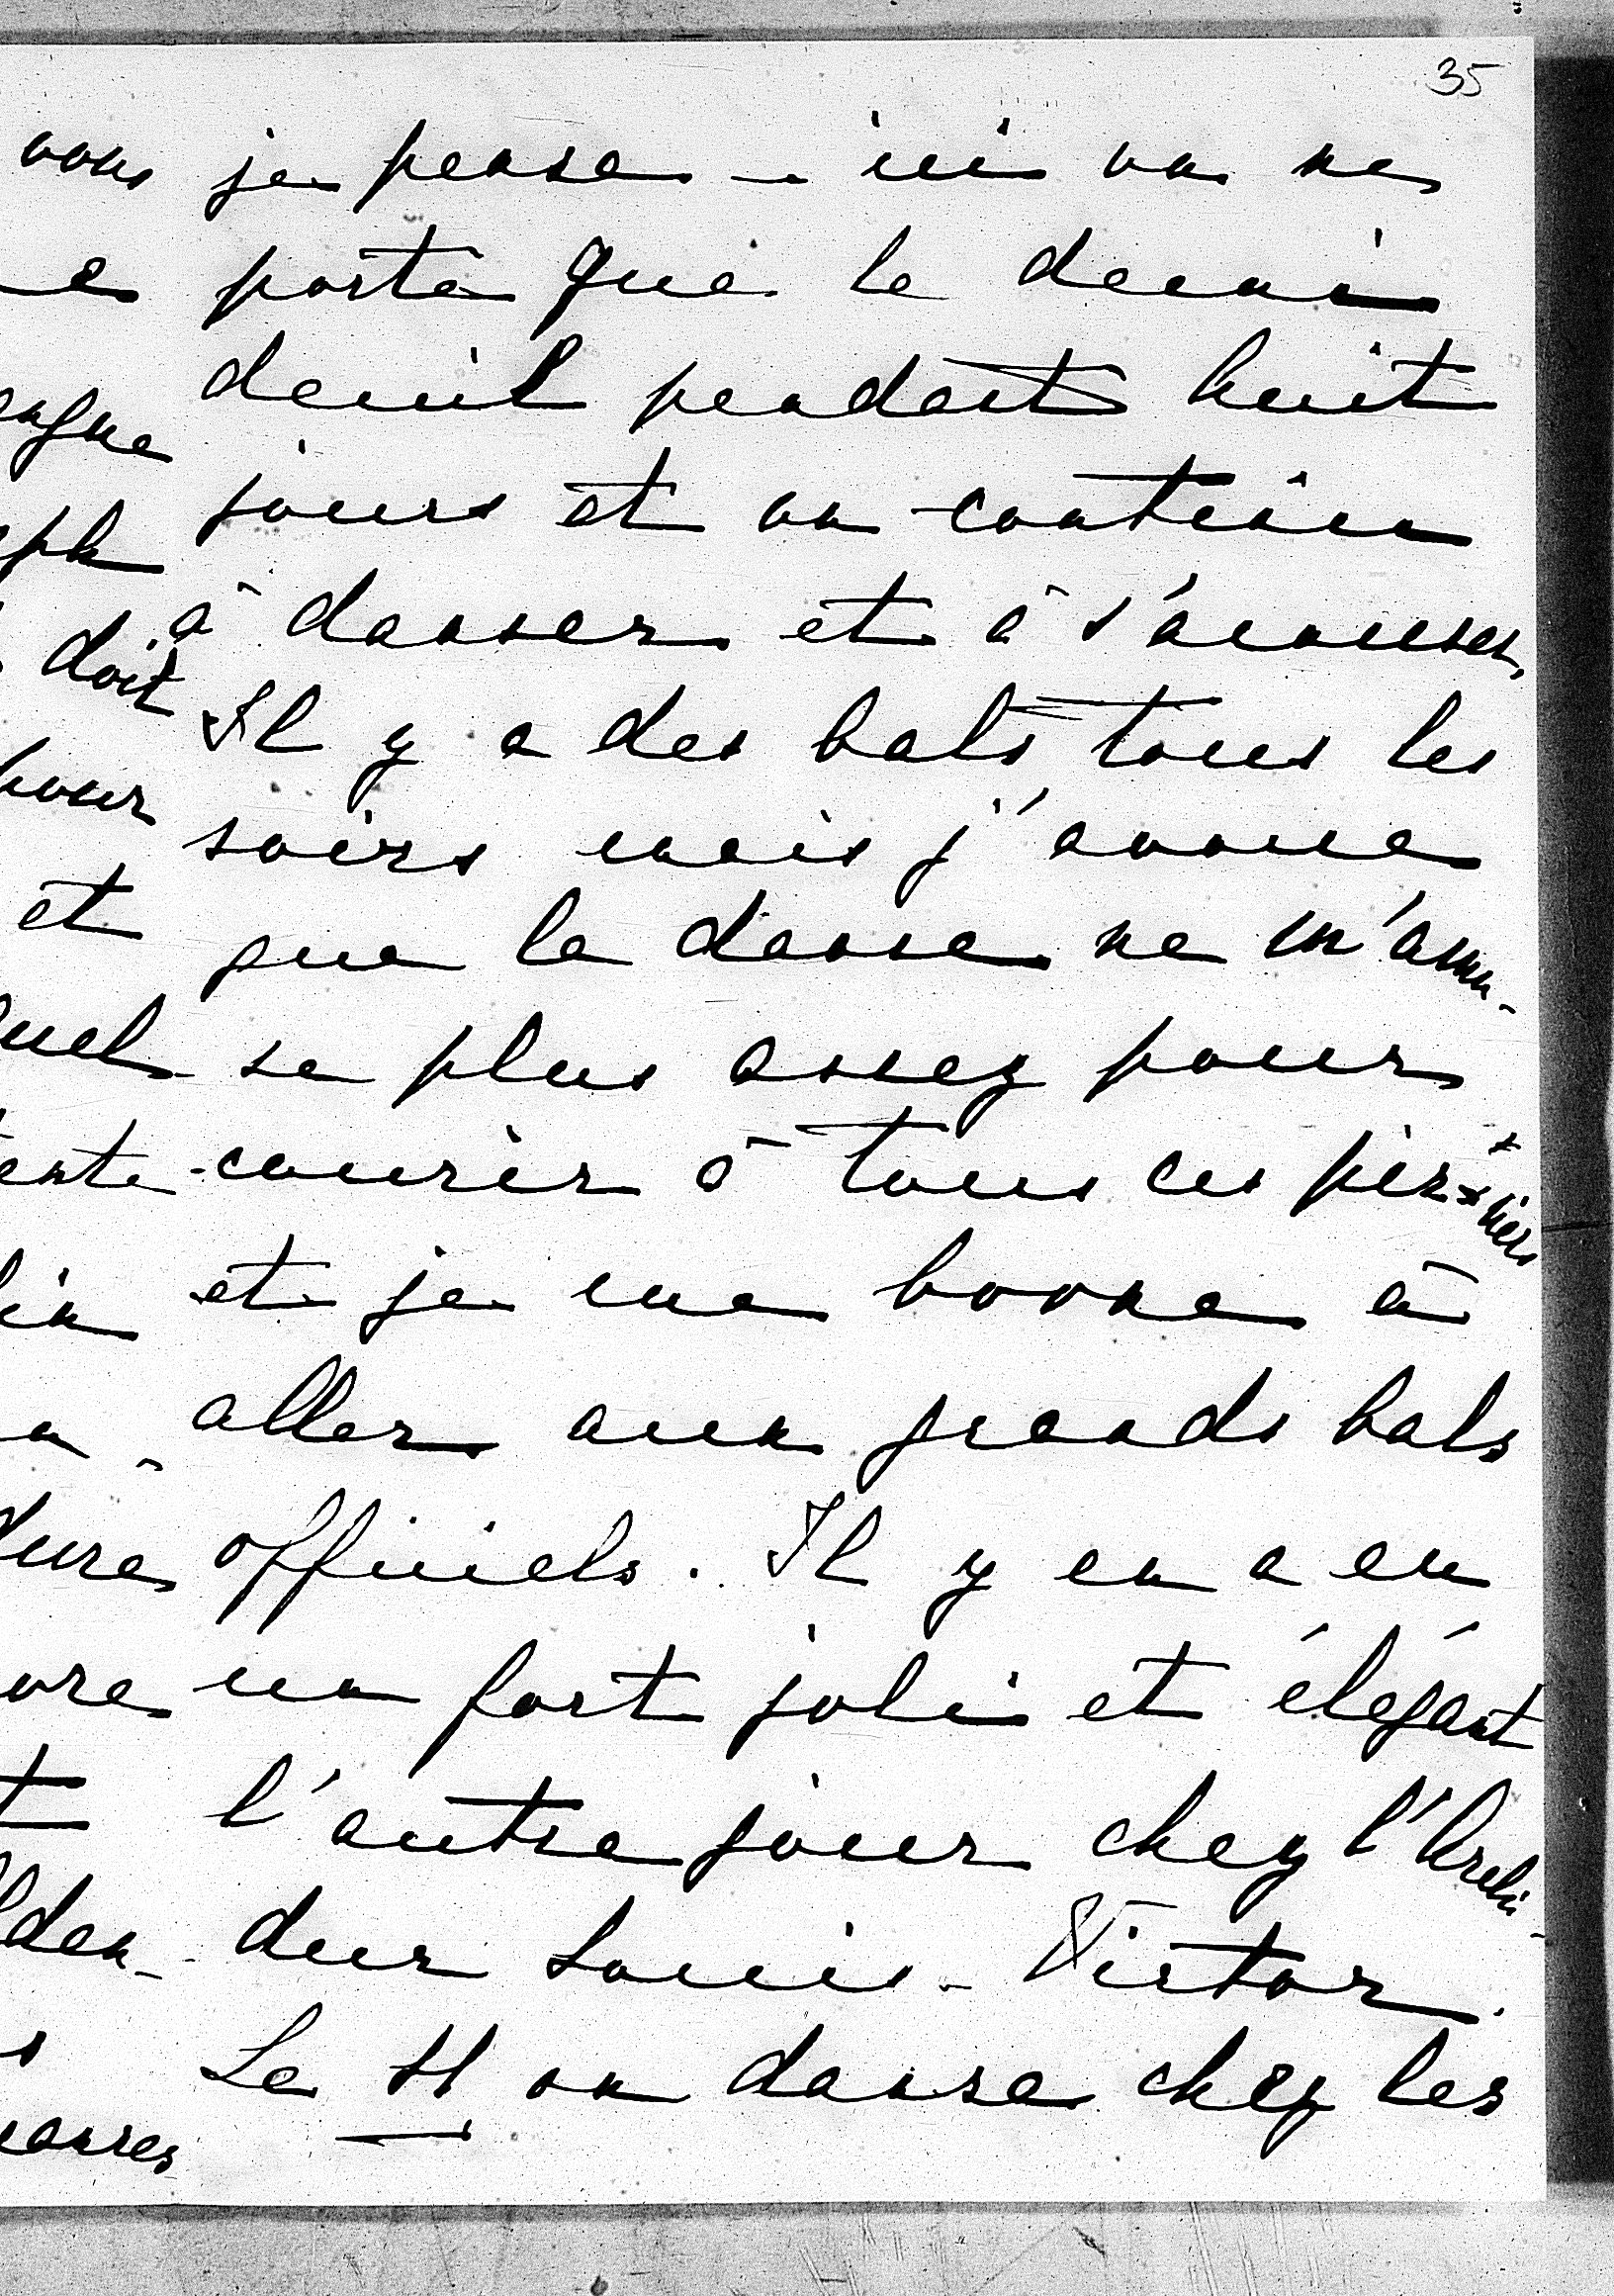 35
je pense - ici on ne
porte que le demi
deuil pendant huit
jours et on continu
à danser et à s'amuser,
Il y a des bals tous les
soirs mais j'avoue
que la danse ne m'amu-
se plus assez pour
courir à tous ces
et je me borne à
aller aux grands bals
officiels. Il y en a eu
un fort joli et élégant
l'autre jour chez l'Archi-
duc Louis-Victor.
Le 11 on danse chez les
vous
doit
pour
et